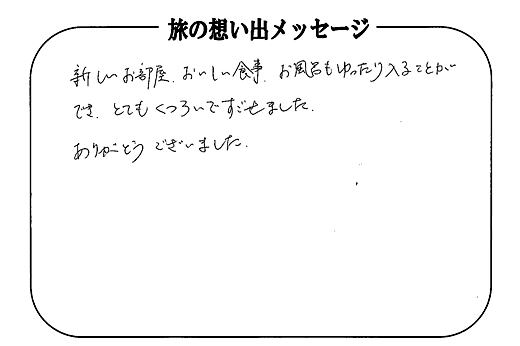 旅の想い出メッセージ
新しいお部屋、おいしい食事、お風呂もゆったり入ることが
でき、とてもくつろいですごせました。
ありがとうございました。